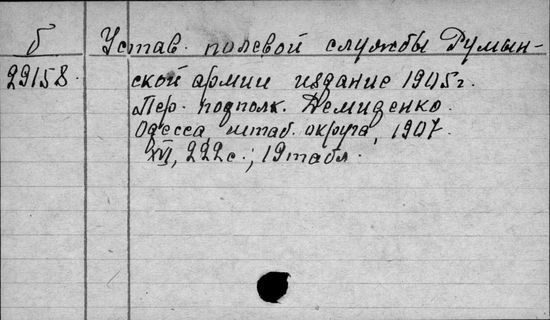 б Устав. полевой службы Румын-
29158. ской армии издание 1905г.
Пер. подполк. Демиденко.
Одесса, штаб. округа, 1907.
XVI, 222с.; 19табл.